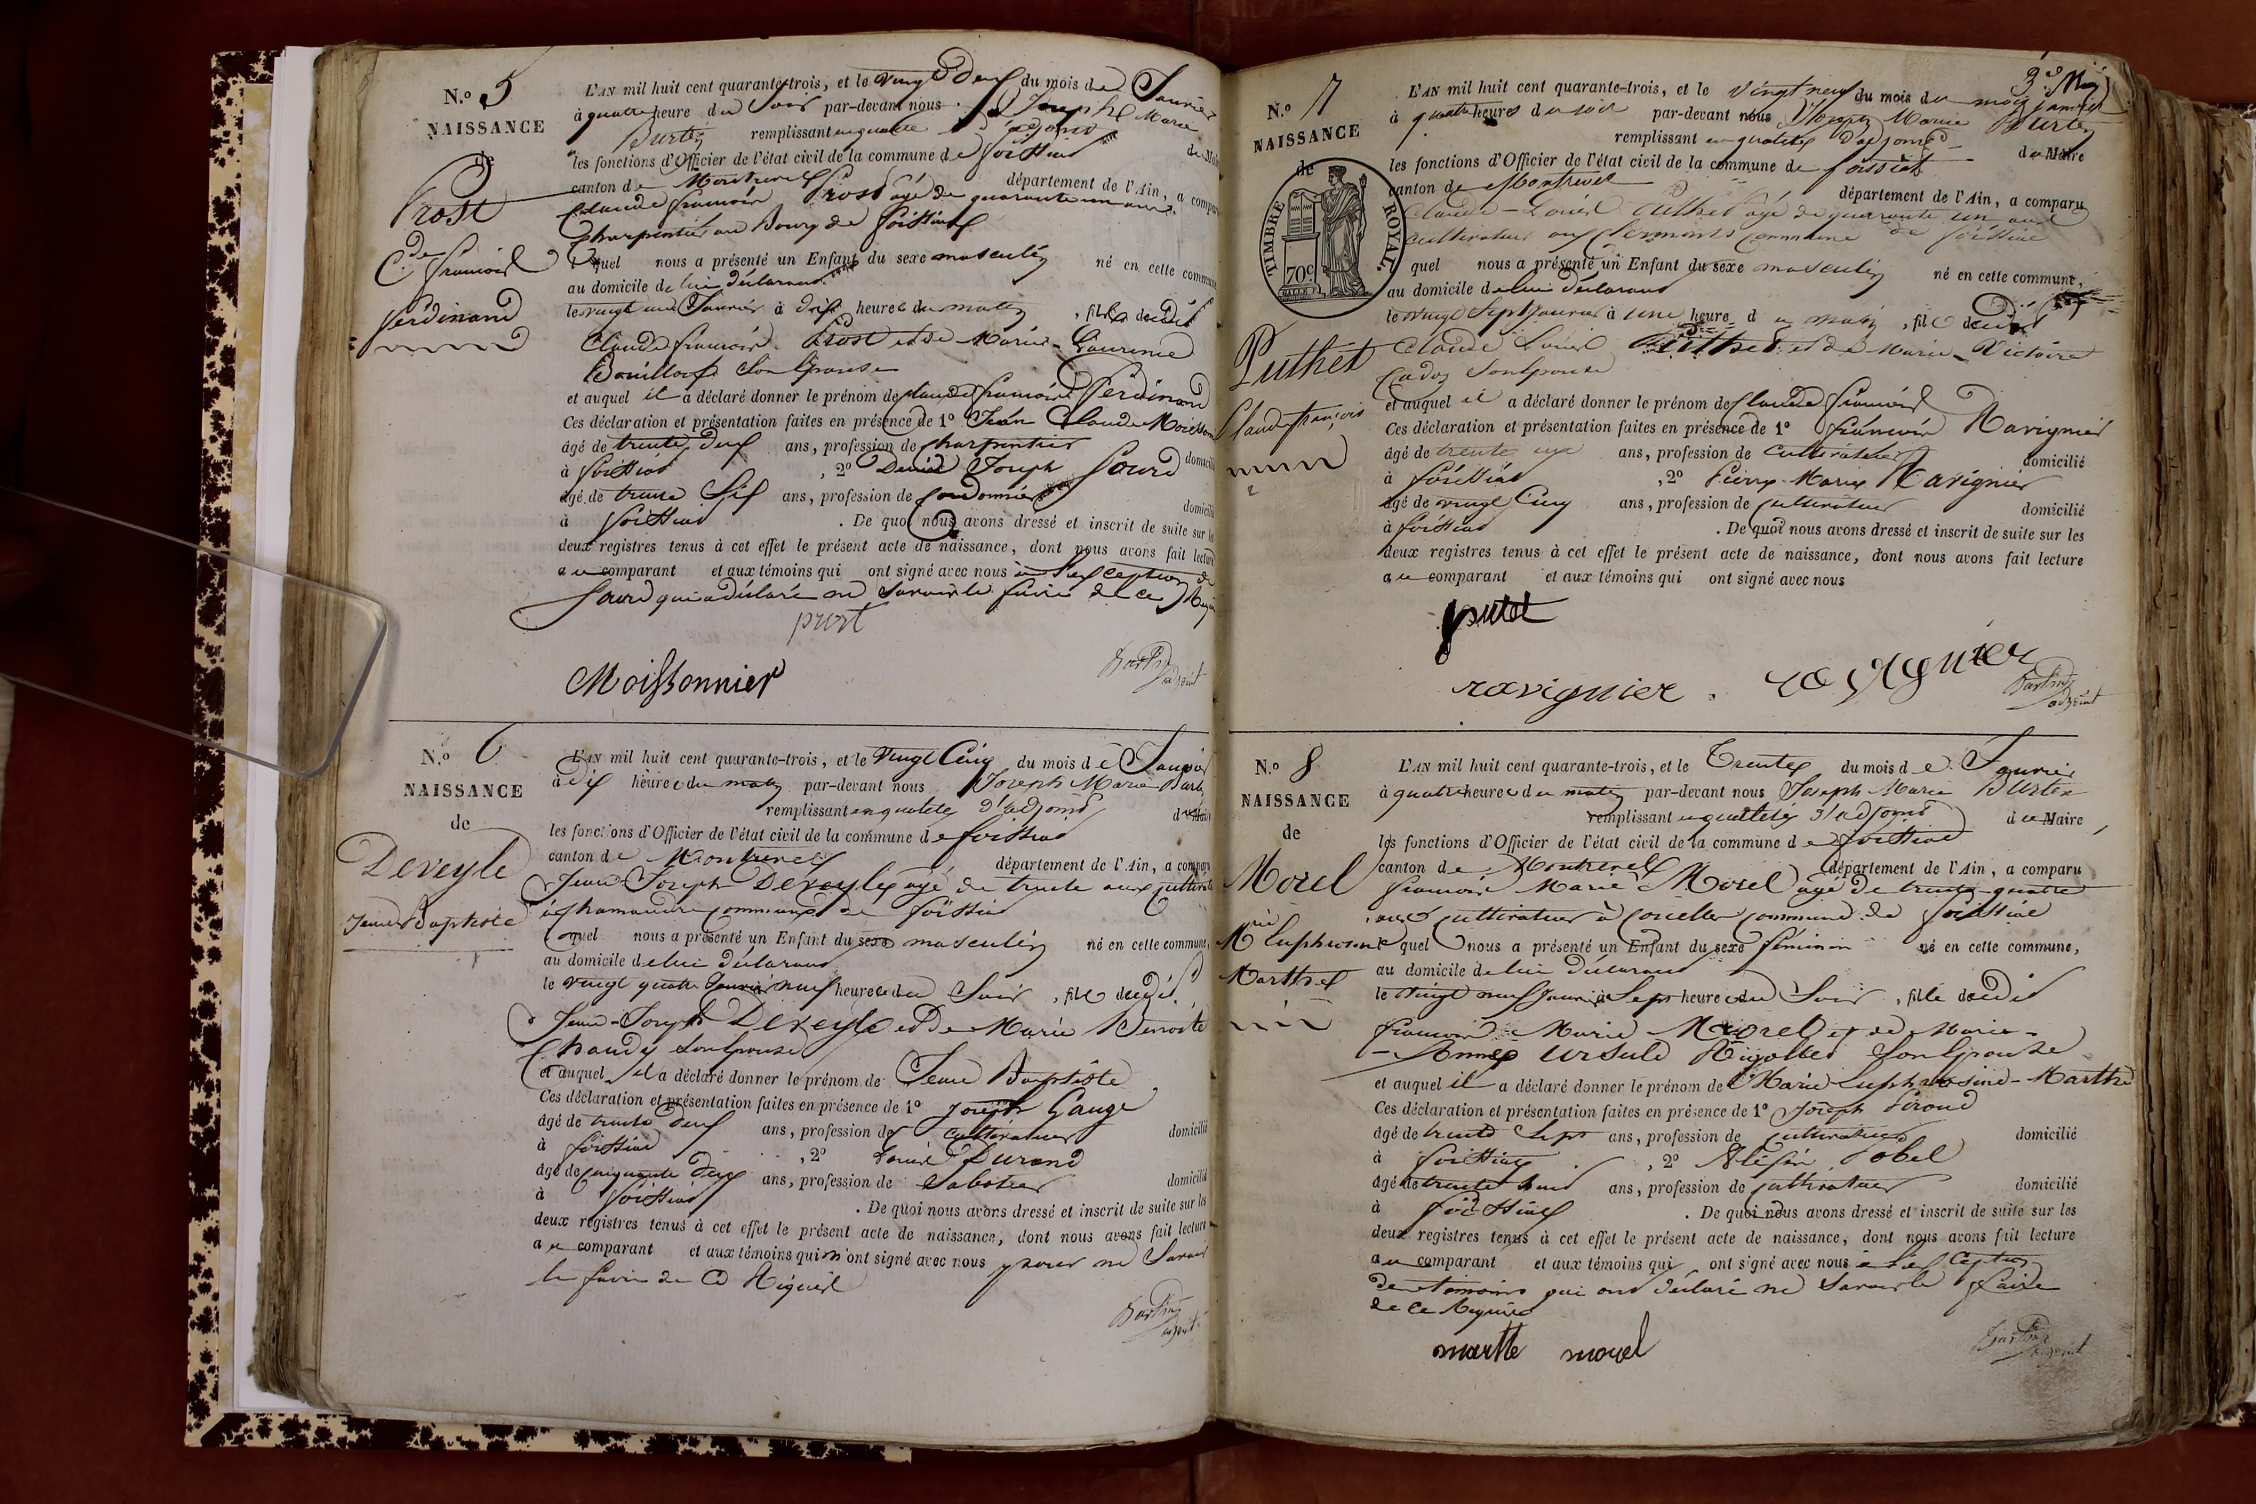 N.o 5
NAISSANCE
de
Prost
C.de françois
ferdinand
L'AN mil huit cent quarante-trois, et le vingt deux du mois de Janvier
à quatre heure du Soir par-devant nous Joseph Marie
Burtin remplissant en qualité d'adjoint
les fonctions d'Officier de l'état civil de la commune de foissiat
canton de Montrevel département de l'Ain, a comparu
Claude françois Prost agé de quarante un ans
charpentier au Bourg de foissiat
quel nous a présenté un Enfant du sexe masculin né en cette commune
au domicile de lui déclarant
le vingt un Janvier à dix heures du matin, fils de dit
Claude françois Prost et de Marie-Laurence
Bouilloux Son Epouse
et auquel il a déclaré donner le prénom de Claude françois Ferdinand
Ces déclaration et présentation faites en présence de 1º Jean Claude Moissonnier
âgé de trente deux ans, profession de charpentier
à foissiat domicilié, 2º Denis Joseph Sourd
âgé de trente Six ans, profession de Cordonnier domicilié
à foissiat. De quoi nous avons dressé et inscrit de suite sur les
deux registres tenus à cet effet le présent acte de naissance, dont nous avons fait lecture
au comparant et aux témoins qui ont signé avec nous à l'exception de
Sourd qui a déclaré ne Savoir le faire de ce Requis
prost
Moissonnier
Burtin
adjoint
N.o 6
NAISSANCE
de
Deveyle
Jean Baptiste
L'AN mil huit cent quarante-trois, et le vingt Cinq du mois de Janvier
à dix heures du matin par-devant nous Joseph Marie Burtin
remplissant en qualité d'adjoint du Maire
les fonctions d'Officier de l'état civil de la commune de foissiat
canton de Montrevel département de l'Ain, a comparu
Jean-Joseph Deveyle agé de trente ans cultivateur
commune de foissiat
quel nous a présenté un Enfant du sexe masculin né en cette commune,
au domicile de lui déclarant
le vingt quatre Janvier neuf heures du Soir, fils de dit
Jean-Joseph Deveyle et de Marie Benoite
Chaudy Son Epouse
et auquel il a déclaré donner le prénom de Jean Baptiste
Ces déclaration et présentation faites en présence de 1º Joseph Gauge
âgé de trente deux ans, profession de cultivateur domicilié
à foissiat, 2º Louis Durand
âgé de cinquante deux ans, profession de Sabotier domicilié
à foissiat. De quoi nous avons dressé et inscrit de suite sur les
deux registres tenus à cet effet le présent acte de naissance, dont nous avons fait lecture
au comparant et aux témoins qui n'ont signé avec nous pour ne Savoir
le faire de ce Requis
Burtin
adjoint
N.o 7
NAISSANCE
de
TIMBRE ROYAL.
70c
Puthet
Claude françois
L'AN mil huit cent quarante-trois, et le vingt neuf du mois de janvier
à quatre heures du soir par-devant nous Joseph Marie Burtin
remplissant en qualité d'adjoint du Maire
les fonctions d'Officier de l'état civil de la commune de foissiat
canton de Montrevel département de l'Ain, a comparu
Claude-Louis Puthet âgé de quarante un ans
cultivateur aux Clermonts commune de foissiat
quel nous a présenté un Enfant du sexe masculin né en cette commune,
au domicile de lui déclarant
le vingt Sept Janvier à une heure du matin, fils de dit
Claude Louis Puthet et de Marie-Victoire
Cadoz Son Epouse
et auquel il a déclaré donner le prénom de Claude françois
Ces déclaration et présentation faites en présence de 1º françois Ravignier
âgé de trente ans, profession de Cultivateur domicilié
à foissiat, 2º Pierre-Marie Ravignier
âgé de vingt Cinq ans, profession de cultivateur domicilié
à foissiat. De quoi nous avons dressé et inscrit de suite sur les
deux registres tenus à cet effet le présent acte de naissance, dont nous avons fait lecture
au comparant et aux témoins qui ont signé avec nous
putet
ravignier. ravignier
Burtin
adjoint
N.o 8
NAISSANCE
de
Morel
M.rie Euphrosine
Marthe
L'AN mil huit cent quarante-trois, et le Trente du mois de Janvier
à quatre heures du matin par-devant nous Joseph Marie Burtin
remplissant en qualité d'adjoint du Maire
les fonctions d'Officier de l'état civil de la commune de foissiat
canton de Montrevel département de l'Ain, a comparu
françois Marie Morel âgé de trente-quatre
ans cultivateur à Corcelles commune de foissiat
quel nous a présenté un Enfant du sexe féminin né en cette commune,
au domicile de lui déclarant
le vingt neuf Janvier à Sept heures du Soir, fille de dit
françois-Marie Morel et de Marie-
-Anne Ursule Rigollet Son Epouse
et auquel il a déclaré donner le prénom de Marie Euphrosine-Marthe
Ces déclaration et présentation faites en présence de 1º Joseph Piroud
âgé de trente Sept ans, profession de cultivateur domicilié
à foissiat, 2º Alexis Pobel
âgé de trente huit ans, profession de cultivateur domicilié
à foissiat. De quoi nous avons dressé et inscrit de suite sur les
deux registres tenus à cet effet le présent acte de naissance, dont nous avons fait lecture
au comparant et aux témoins qui ont signé avec nous à l'exception
des témoins qui ont déclaré ne Savoir le faire
de ce Requis
marthe morel
Burtin
adjoint